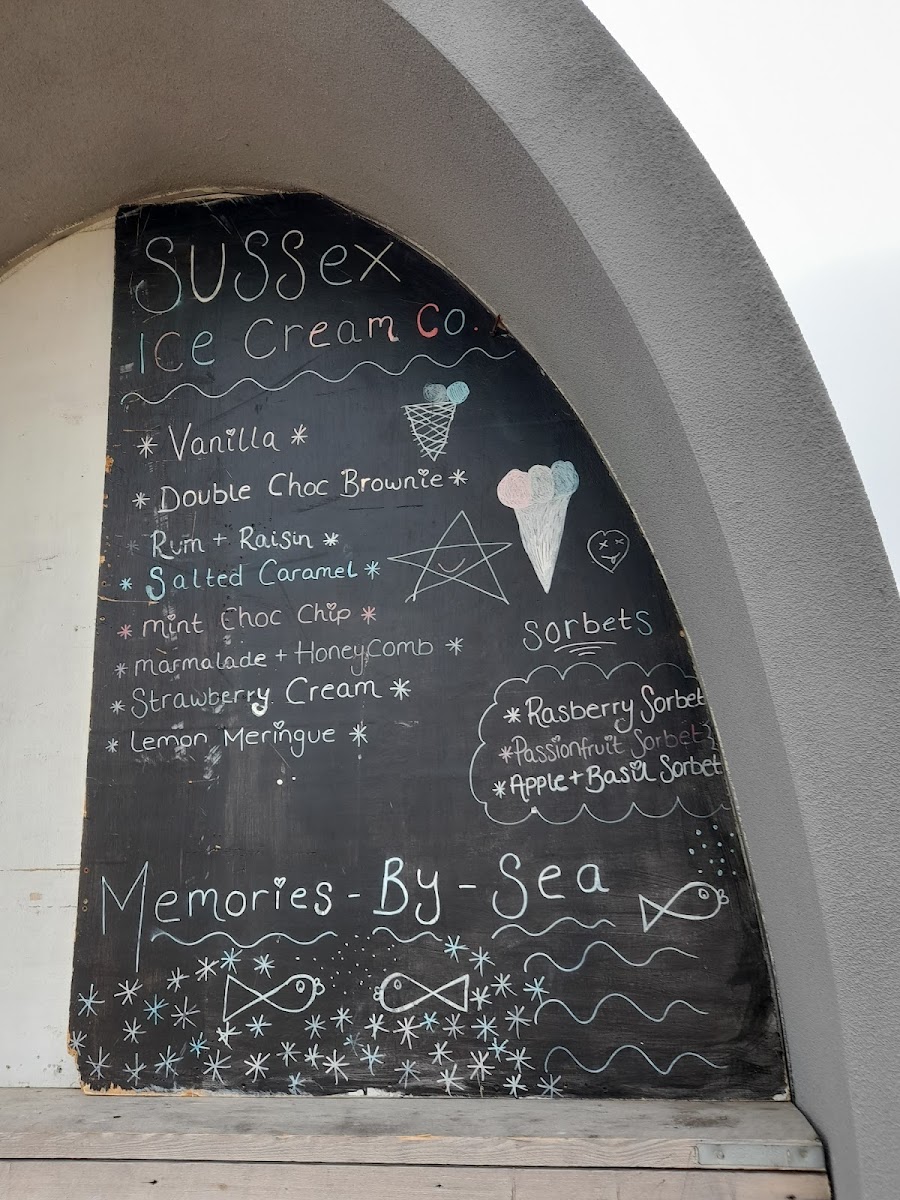 Sussex
Ice Cream Co.
* Vanilla *
* Double Choc Brownie *
* Rum + Raisin *
* Salted Caramel *
* mint Choc Chip *
* marmalade + HoneyComb *
* Strawberry Cream *
* Lemon Meringue *
Sorbets
* Rasberry Sorbet
* Passionfruit Sorbet
* Apple + Basil Sorbet
Memories - By - Sea